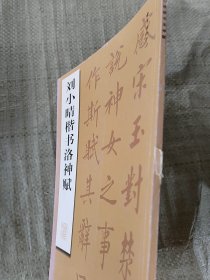 刘小晴楷书洛神赋
感宋玉對楚
說神女之事
作斯賦其辭